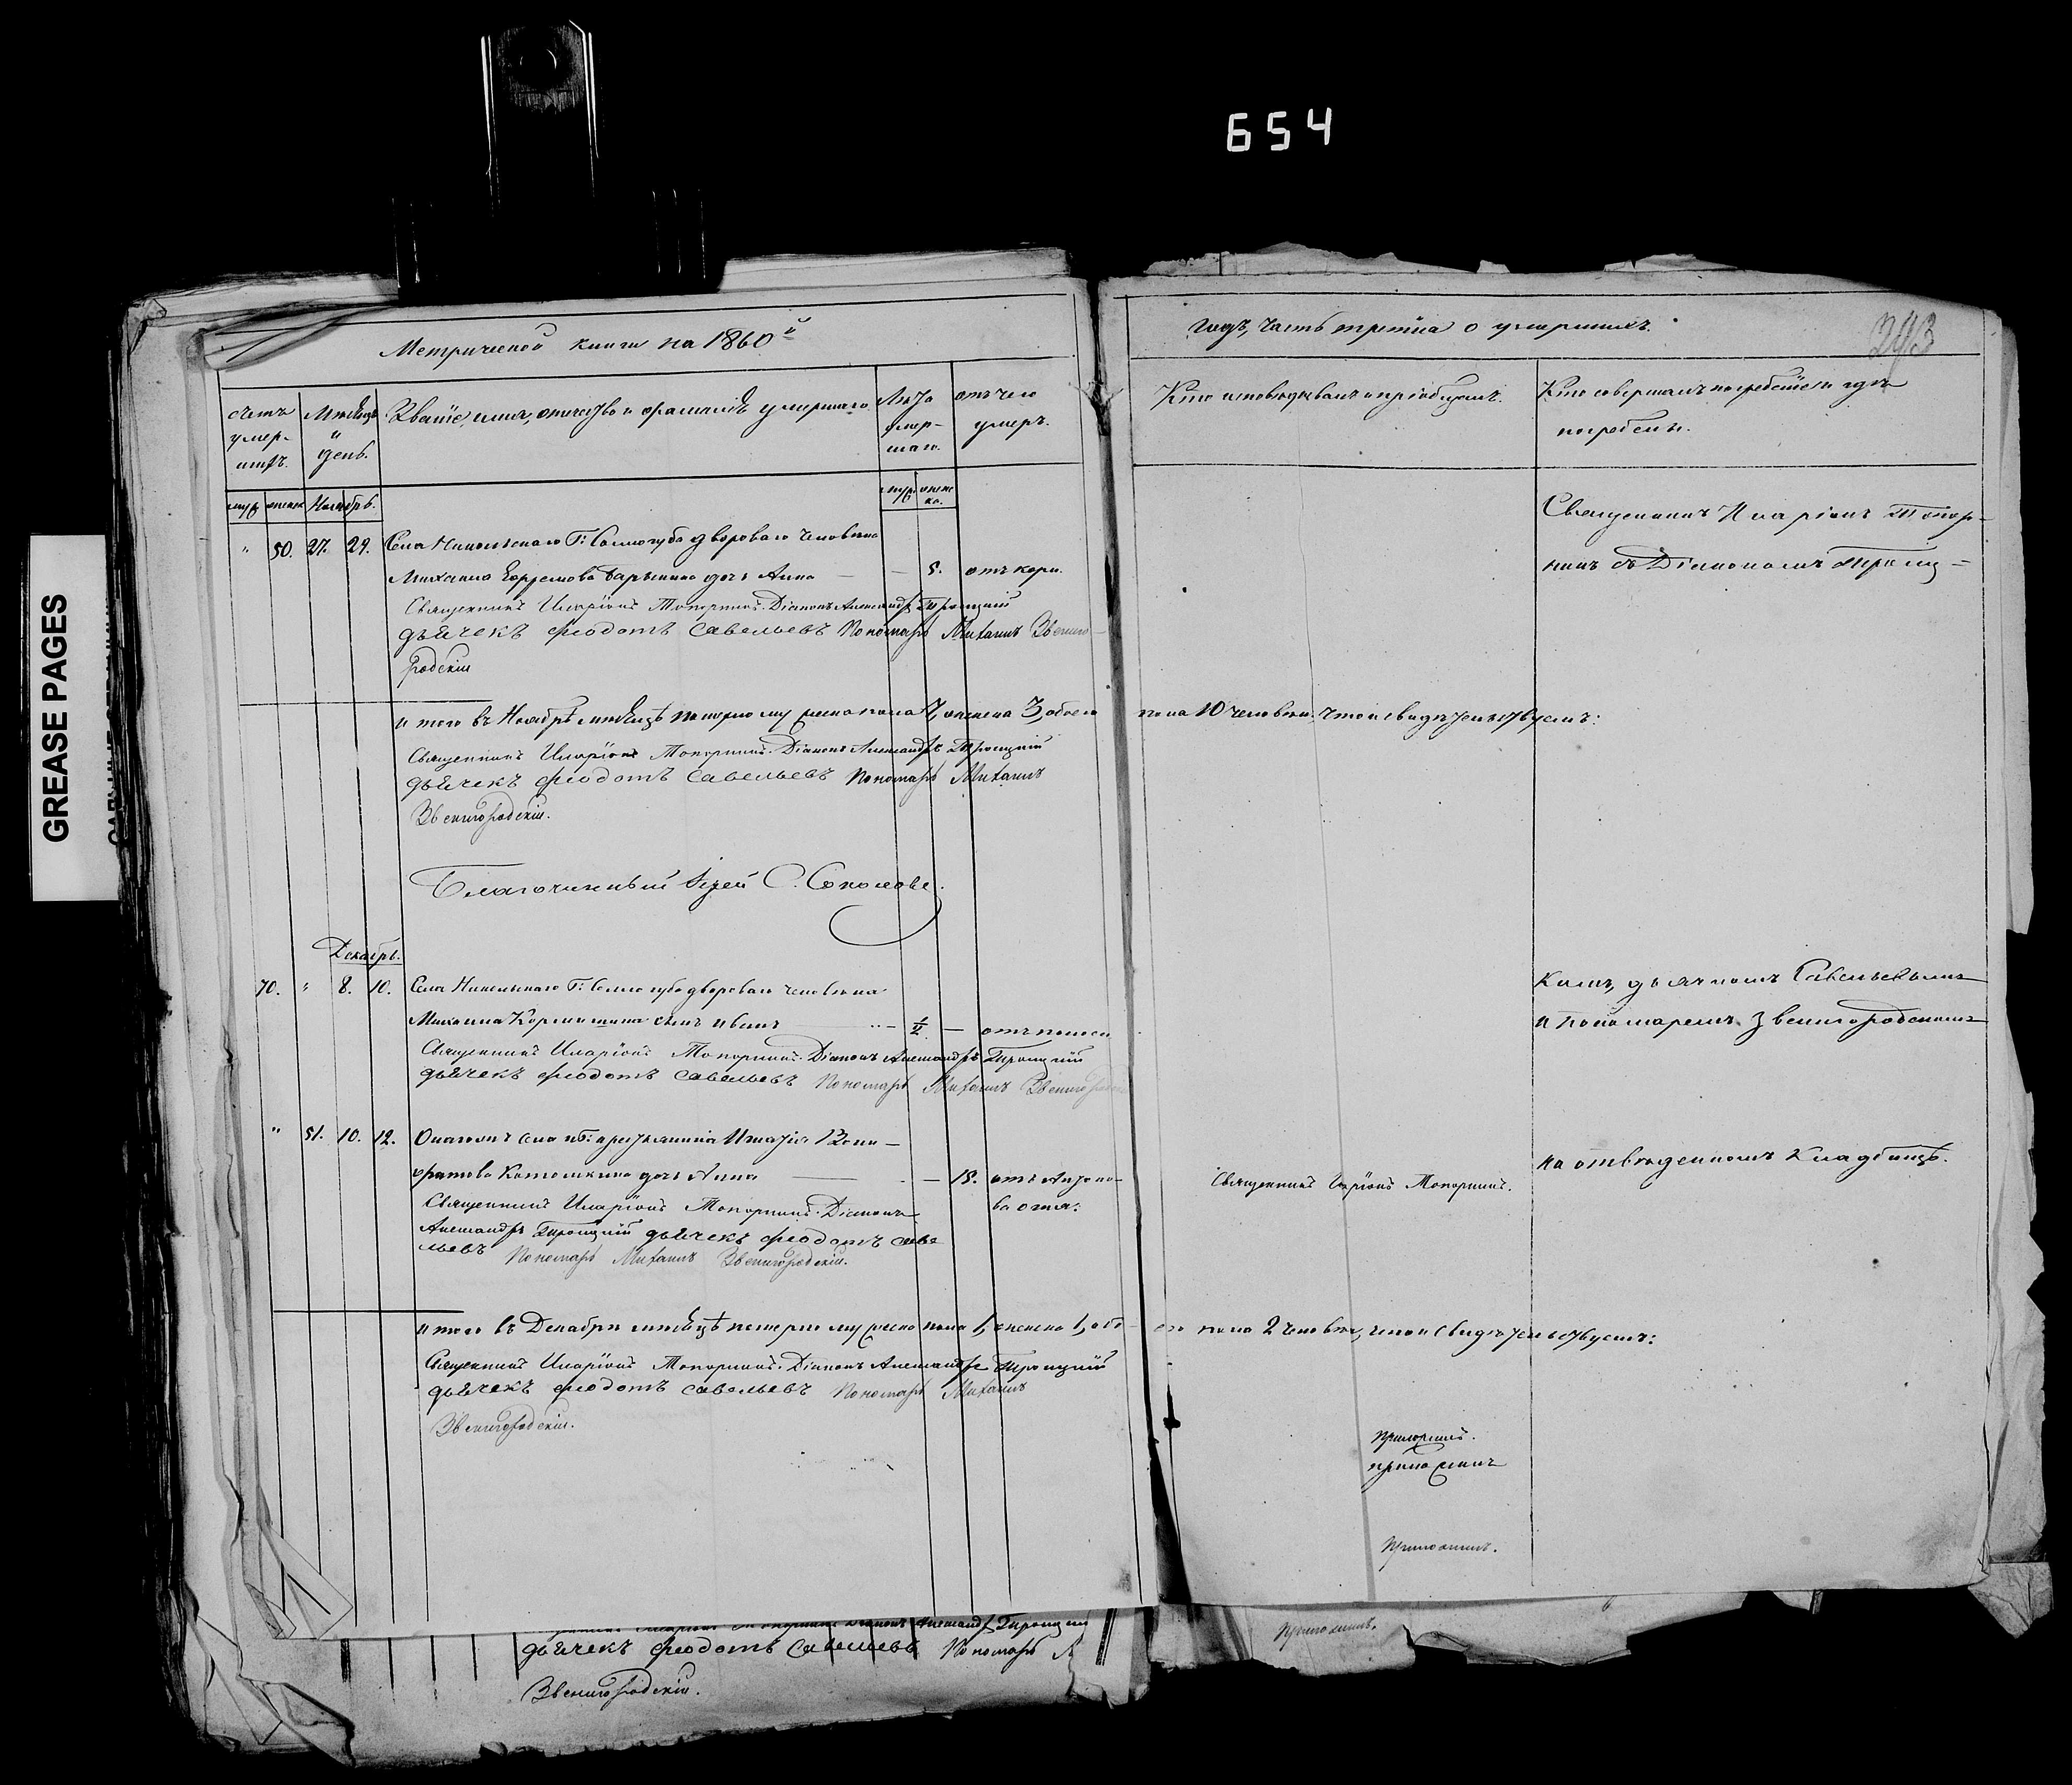 654
GREASE PAGES
Метрической книги на 1860й
годъ, часть третiа о умершихъ.
243
счетъ умер- шихъ.
Мѣсяцъ и день.
Званiе, имя, отечество и фамилiя умершаго.
Лѣта умер- шаго.
отъ чего умеръ.
Кто исповѣдывалъ и прiобщалъ.
Кто совершалъ погребенiе и гдѣ
погребенъ.
муж женск Ноябрь.
муж женска.
" 50. 27. 29. Села Никольскаго Г: Соллогуба двороваго человѣка
Михаила Ефремова дочь Анна — — 5. отъ кори.
Священникъ Иларiонъ Топорнинъ. Дiаконъ Александръ Троицкiй
дьячекъ Феодотъ Савельевъ Пономарь Михаилъ Звениго-
родскiй
Священникъ Иларiонъ Топор-
нинъ съ Дiакономъ Троиц-
и того въ Ноябрѣ мѣсяцѣ померло мужеска пола 7, женска 3, обоего
пола 10 человѣкъ. что и свидѣтельствуемъ:
Священникъ Иларiонъ Топорнинъ. Дiаконъ Александръ Троицкiй
дьячекъ Феодотъ Савельевъ Пономарь Михаилъ
Звенигородскiй.
Благочинный Iерей С. Соколовъ.
Декабрь.
70. " 8. 10. Села Никольскаго Г: Соллогуба двороваго человѣка
Михаила сынъ Иванъ — отъ поноса
Священникъ Иларiонъ Топорнинъ. Дiаконъ Александръ Троицкiй
дьячекъ Феодотъ Савельевъ Пономарь Михаилъ Звенигородскiй
кимъ, дьячкомъ Савельевымъ
и пономаремъ Звенигородскимъ
" 51. 10. 12. Онагожъ села и Г: крестьянина Игнатiя
дочь Анна — — 15. отъ Антоно-
ва огня.
Священникъ Иларiонъ Топорнинъ. Дiаконъ
Александръ Троицкiй дьячекъ Феодотъ Саве
льевъ Пономарь Михаилъ Звенигородскiй.
Священникъ Иларiонъ Топорнинъ.
на отведенномъ Кладбищѣ.
и того въ Декабрѣ мѣсяцѣ померло мужеска пола 1, женска 1, обо-
его пола 2 человѣка, что и свидѣтельствуемъ:
Священникъ Иларiонъ Топорнинъ. Дiаконъ Александръ Троицкiй
дьячекъ Феодотъ Савельевъ Пономарь Михаилъ
Звенигородскiй.
дьячекъ Феодотъ Савельевъ Пономарь
Звенигородскiй.